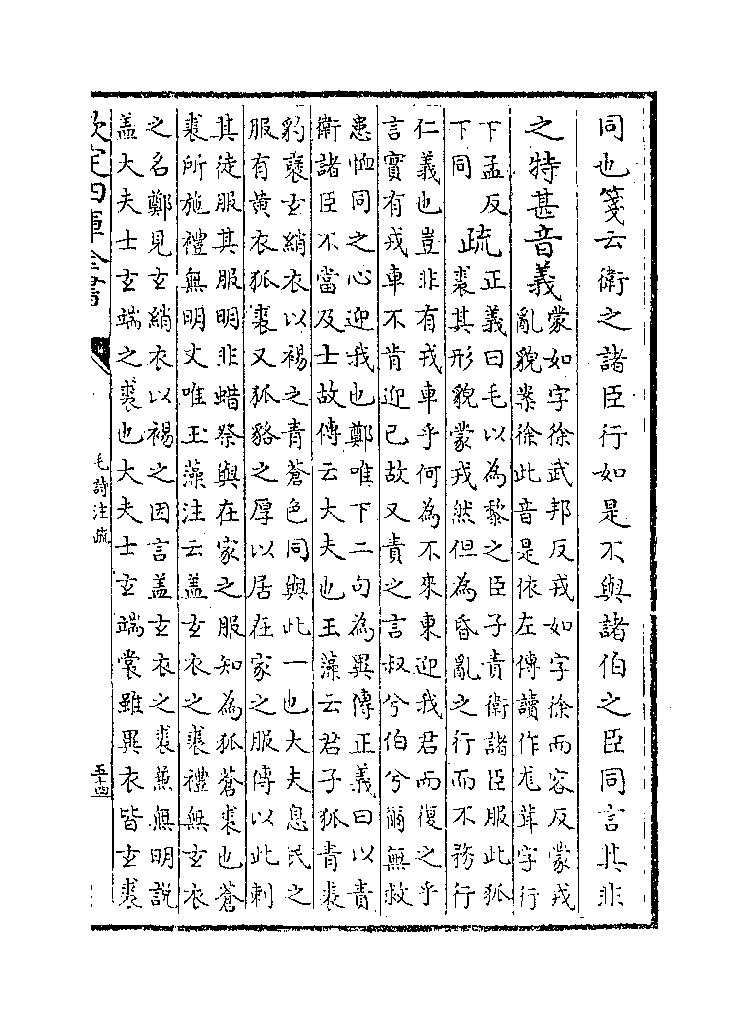 同也箋云衛之諸臣行如是不與諸伯之臣同言其非
之特甚音義
蒙如字徐武邦反戎如字徐而容反蒙戎
亂貌案徐此音是依左傳讀作尨茸字行
下孟反
下同
疏
正義曰毛以為黎之臣子責衛諸臣服此狐
裘其形貌蒙戎然但為昏亂之行而不務行
仁義也豈非有戎車乎何為不來東迎我君而復之乎
言實有戎車不肯迎已故又責之言叔兮伯兮爾無救
患恤同之心迎我也鄭唯下二句為異傳正義曰以責
衛諸臣不當及士故傳云大夫也玉藻云君子狐青裘
豹褎玄綃衣以裼之青蒼色同與此一也大夫息民之
服有黄衣狐裘又狐貉之厚以居在家之服傳以此刺
其徒服其服明非蜡祭與在家之服知為狐蒼裘也蒼
裘所施禮無明文唯玉藻注云盖玄衣之裘禮無玄衣
之名鄭見玄綃衣以裼之因言盖玄衣之裘兼無明説
盖大夫士玄端之裘也大夫士玄端裳雖異衣皆玄裘
欽定四庫全書
毛詩注疏
五十四